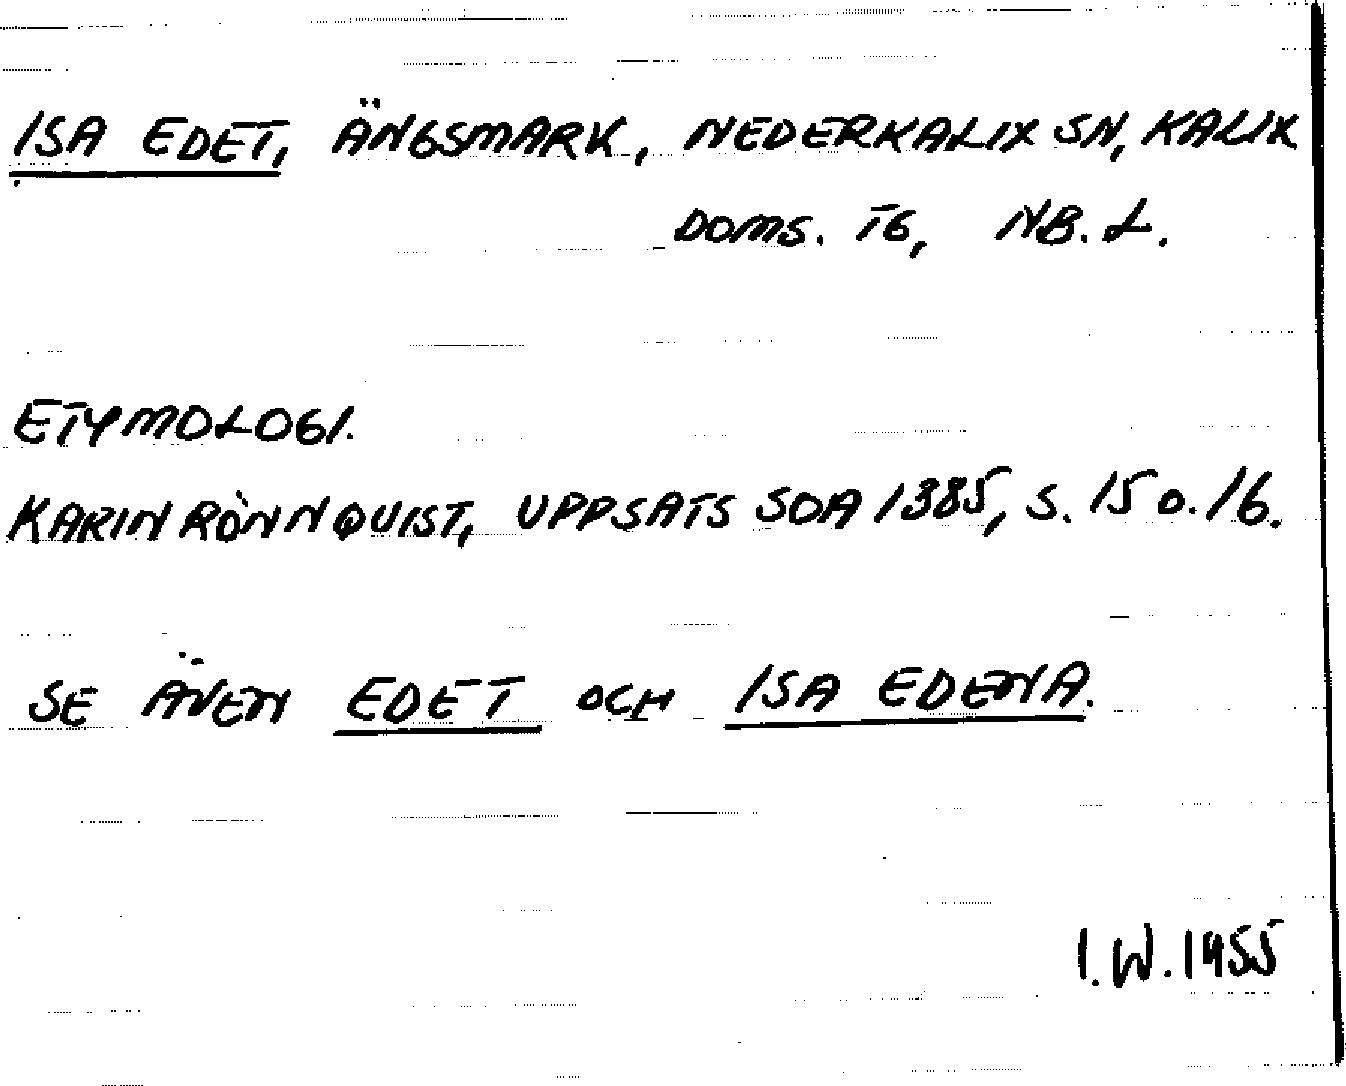 ISA EDET, ÄNGSMARK, NEDERKALIX SN, KALIX
DOMS. TG, NB. L.
ETYMOLOGI.
KARIN RÖNNQUIST, UPPSATS SOA 1385, S. 15 O. 16.
SE ÄVEN EDET OCH ISA EDENA.
I. W. 1955